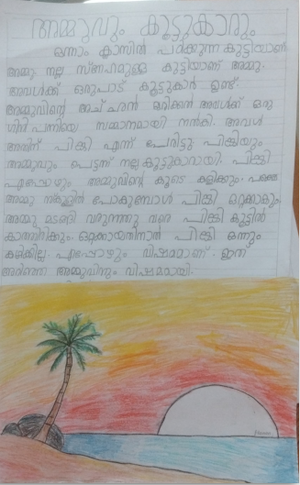 അമ്മുവും കൂട്ടുകാരും
ഒന്നാം ക്ലാസിൽ പഠിക്കുന്ന കുട്ടിയാണ്
അമ്മു. നല്ല സ്നേഹമുള്ള കുട്ടിയാണ് അമ്മു.
അവൾക്ക് ഒരുപാട് കൂട്ടുകാർ ഉണ്ട്.
അമ്മുവിന്റെ അച്ഛൻ ഒരിക്കൽ അവൾക്ക് ഒരു
ഗിനി പന്നിയെ സമ്മാനമായി നൽകി. അവൾ
അതിന് പിങ്കി എന്ന് പേരിട്ടു പിങ്കിയും
അമ്മുവും പെട്ടന്ന് നല്ല കൂട്ടുകാരായി. പിങ്കി
എപ്പോഴും അമ്മുവിന്റെ കൂടെ കളിക്കും. പക്ഷെ
അമ്മു സ്കൂളിൽ പോകുമ്പോൾ പിങ്കി ഒറ്റക്കാകും.
അമ്മു മടങ്ങി വരുന്നതു വരെ പിങ്കി കൂട്ടിൽ
കാത്തിരിക്കും. ഒറ്റക്കായതിനാൽ പിങ്കി ഒന്നും
കഴിക്കില്ല. എപ്പോഴും വിഷമമാണ്. ഇത്
അറിഞ്ഞ അമ്മുവിനും വിഷമമായി.